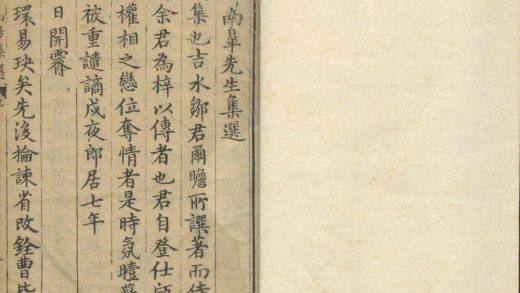 南臯先生集選
集也吉水鄒君爾瞻所譔著而侍
余君為梓以傳者也君自登仕
權相之戀位奪情者是時氛曀
被重譴謫戍夜郎居七年
日開霽
環易玦矣先後掄諫省改銓曹